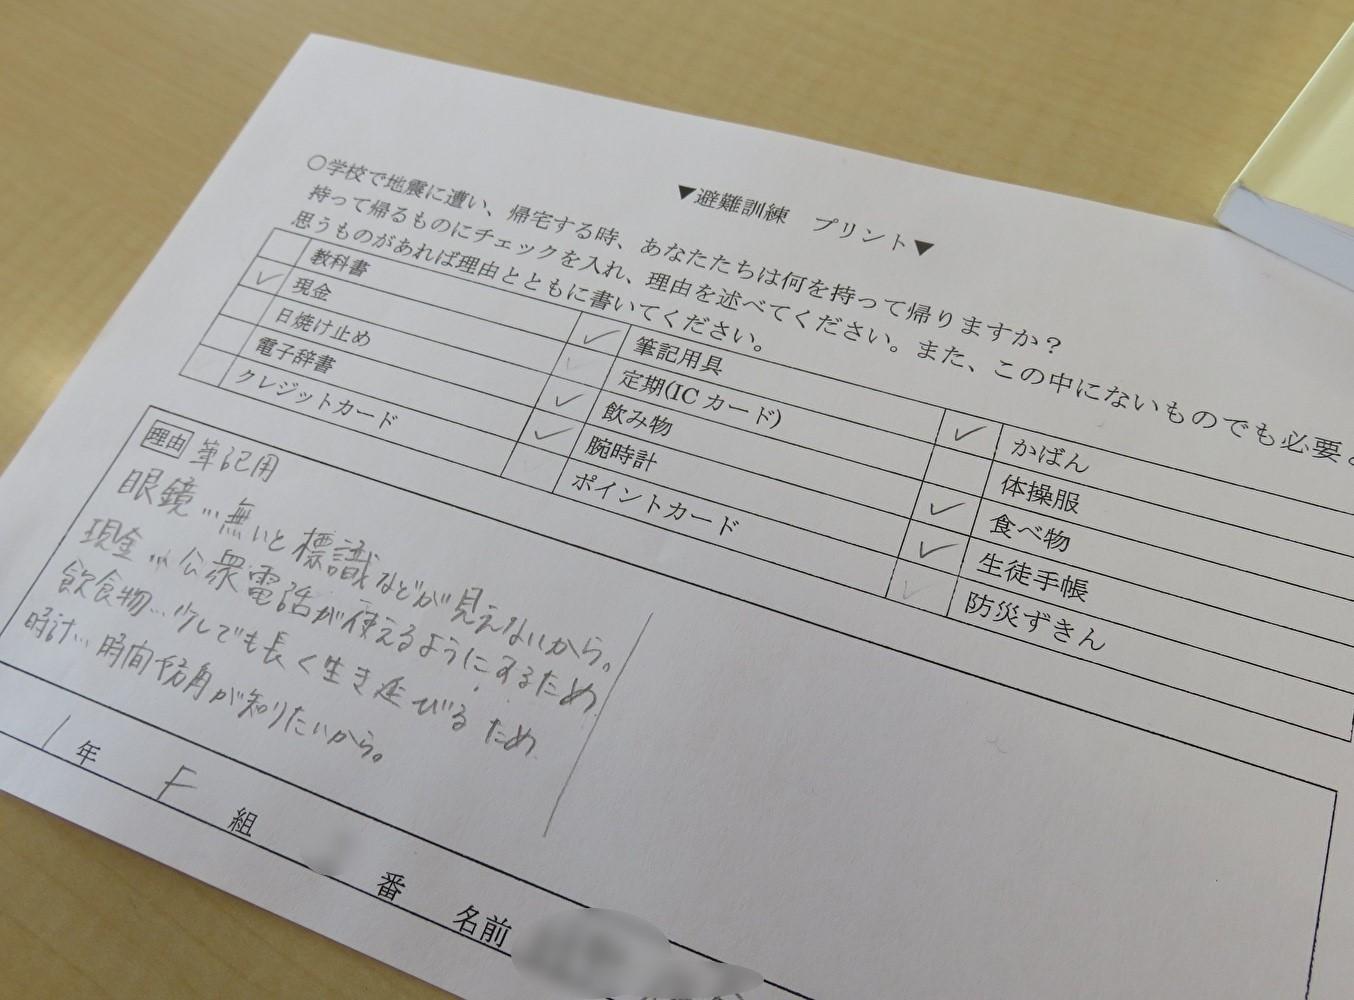 ▼避難訓練　プリント▼
○学校で地震に遭い、帰宅する時、あなたたちは何を持って帰りますか？
持って帰るものにチェックを入れ、理由を述べてください。また、この中にないものでも必要
思うものがあれば理由とともに書いてください。
教科書 ✓ 筆記用具 ✓ かばん
✓ 現金 ✓ 定期(ICカード) 体操服
日焼け止め ✓ 飲み物 ✓ 食べ物
電子辞書 ✓ 腕時計 ✓ 生徒手帳
クレジットカード ポイントカード ✓ 防災ずきん
理由 筆記用
眼鏡…無いと標識などが見えないから。
現金…公衆電話が使えるようにするため
飲食物…少しでも長く生き延びるため
時計…時間方角が知りたいから。
1年 F組 番 名前